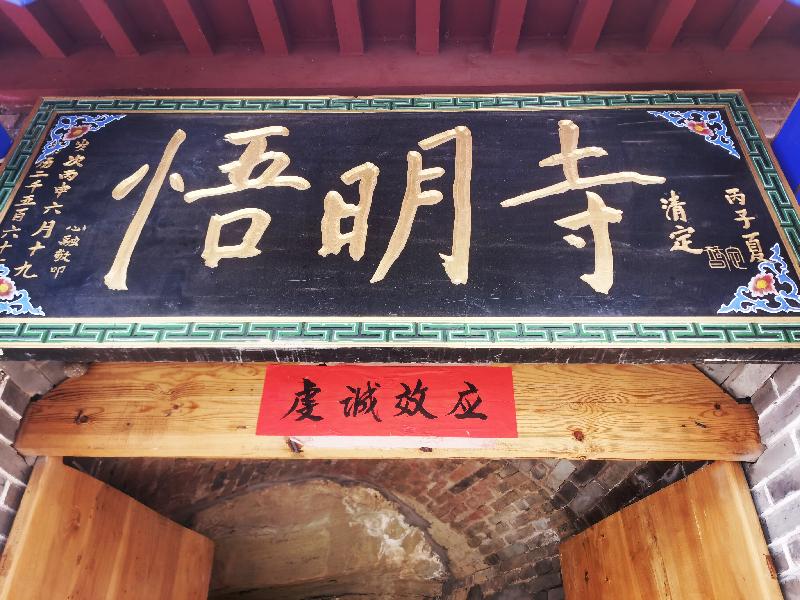 悟明寺
丙子夏
清定
历二千五百六十
岁次丙申六月十九
心融敬叩
虔诚效应